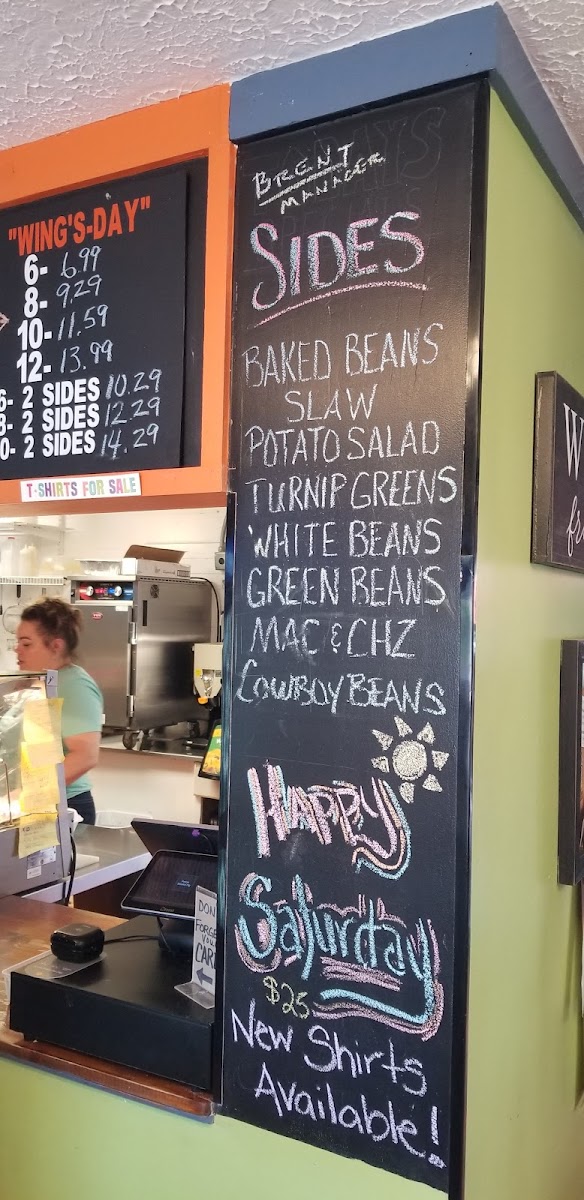 "WING'S-DAY"
6- 6.99
8- 9.29
10- 11.59
12- 13.99
6- 2 SIDES 10.29
8- 2 SIDES 12.29
0- 2 SIDES 14.29
T-SHIRTS FOR SALE
BRENT
MANAGER
SIDES
BAKED BEANS
SLAW
POTATO SALAD
TURNIP GREENS
WHITE BEANS
GREEN BEANS
MAC & CHZ
COWBOY BEANS
HAPPY
Saturday
$25
New Shirts
Available!
DON
FORGE
YOUR
CAR
W
fr